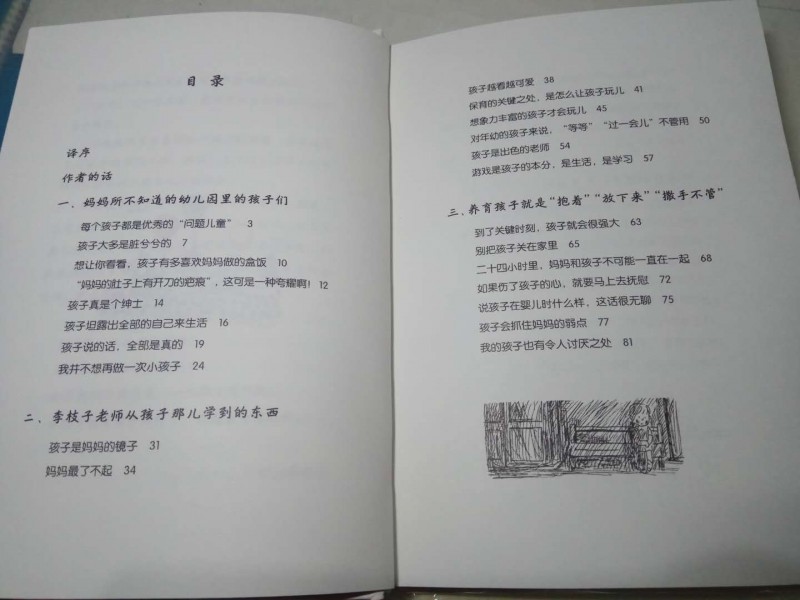 目 录
译序
作者的话
一、妈妈所不知道的幼儿园里的孩子们
每个孩子都是优秀的“问题儿童” 3
孩子大多是脏兮兮的 7
想让你看看，孩子有多喜欢妈妈做的盒饭 10
“妈妈的肚子上有开刀的疤痕”，这可是一种夸耀啊！ 12
孩子真是个绅士 14
孩子坦露出全部的自己来生活 16
孩子说的话，全部是真的 19
我并不想再做一次小孩子 24
二、李枝子老师从孩子那儿学到的东西
孩子是妈妈的镜子 31
妈妈最了不起 34
孩子越看越可爱 38
保育的关键之处，是怎么让孩子玩儿 41
想象力丰富的孩子才会玩儿 45
对年幼的孩子来说，“等等”“过一会儿”不管用 50
孩子是出色的老师 54
游戏是孩子的本分，是生活，是学习 57
三、养育孩子就是“抱着”“放下来”“撒手不管”
到了关键时刻，孩子就会很强大 63
别把孩子关在家里 65
二十四小时里，妈妈和孩子不可能一直在一起 68
如果伤了孩子的心，就要马上去抚慰 72
说孩子在婴儿时什么样，这话很无聊 75
孩子会抓住妈妈的弱点 77
我的孩子也有令人讨厌之处 81